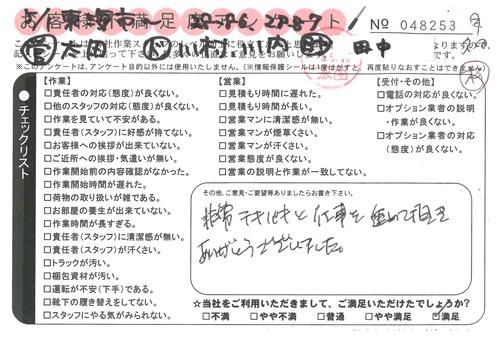 お客様満足
№ 048253
営 太田
村 川内
田中
※このアンケートは、アンケート目的以外には使用いたしません。（※情報保護シールは1度はがすと 再度貼りなおすことはできません）
チェックリスト
【作業】
□責任者の対応（態度）が良くない。
□他のスタッフの対応（態度）が良くない。
□作業を見ていて不安がある。
□責任者（スタッフ）に好感が持てない。
□お客様への挨拶が出来ていない。
□ご近所への挨拶・気遣いが無い。
□作業開始前の内容確認がなかった。
□作業開始時間が遅れた。
□荷物の取り扱いが雑である。
□お部屋の養生が出来ていない。
□作業時間が長すぎる。
□責任者（スタッフ）に清潔感が無い。
□責任者（スタッフ）が汗くさい。
□トラックが汚い。
□梱包資材が汚い。
□運転が不安（下手）である。
□靴下の履き替えをしてない。
□スタッフにやる気がみられない。
【営業】
□見積もり時間に遅れた。
□見積もり時間が長い。
□営業マンに清潔感が無い。
□営業マンが煙草くさい。
□営業マンが汗くさい。
□営業態度が良くない。
□営業の説明と作業が一致してない。
【受付・その他】
□電話の対応が良くない。
□オプション業者の説明・作業が良くない。
□オプション業者の対応（態度）が良くない。
その他、ご意見・ご要望等ありましたらお書き下さい。
非常にテキパキと仕事を進めて頂き
ありがとうございました。
☆当社をご利用いただきまして、ご満足いただけたでしょうか?
□不満 □やや不満 □普通 □やや満足 ☑満足